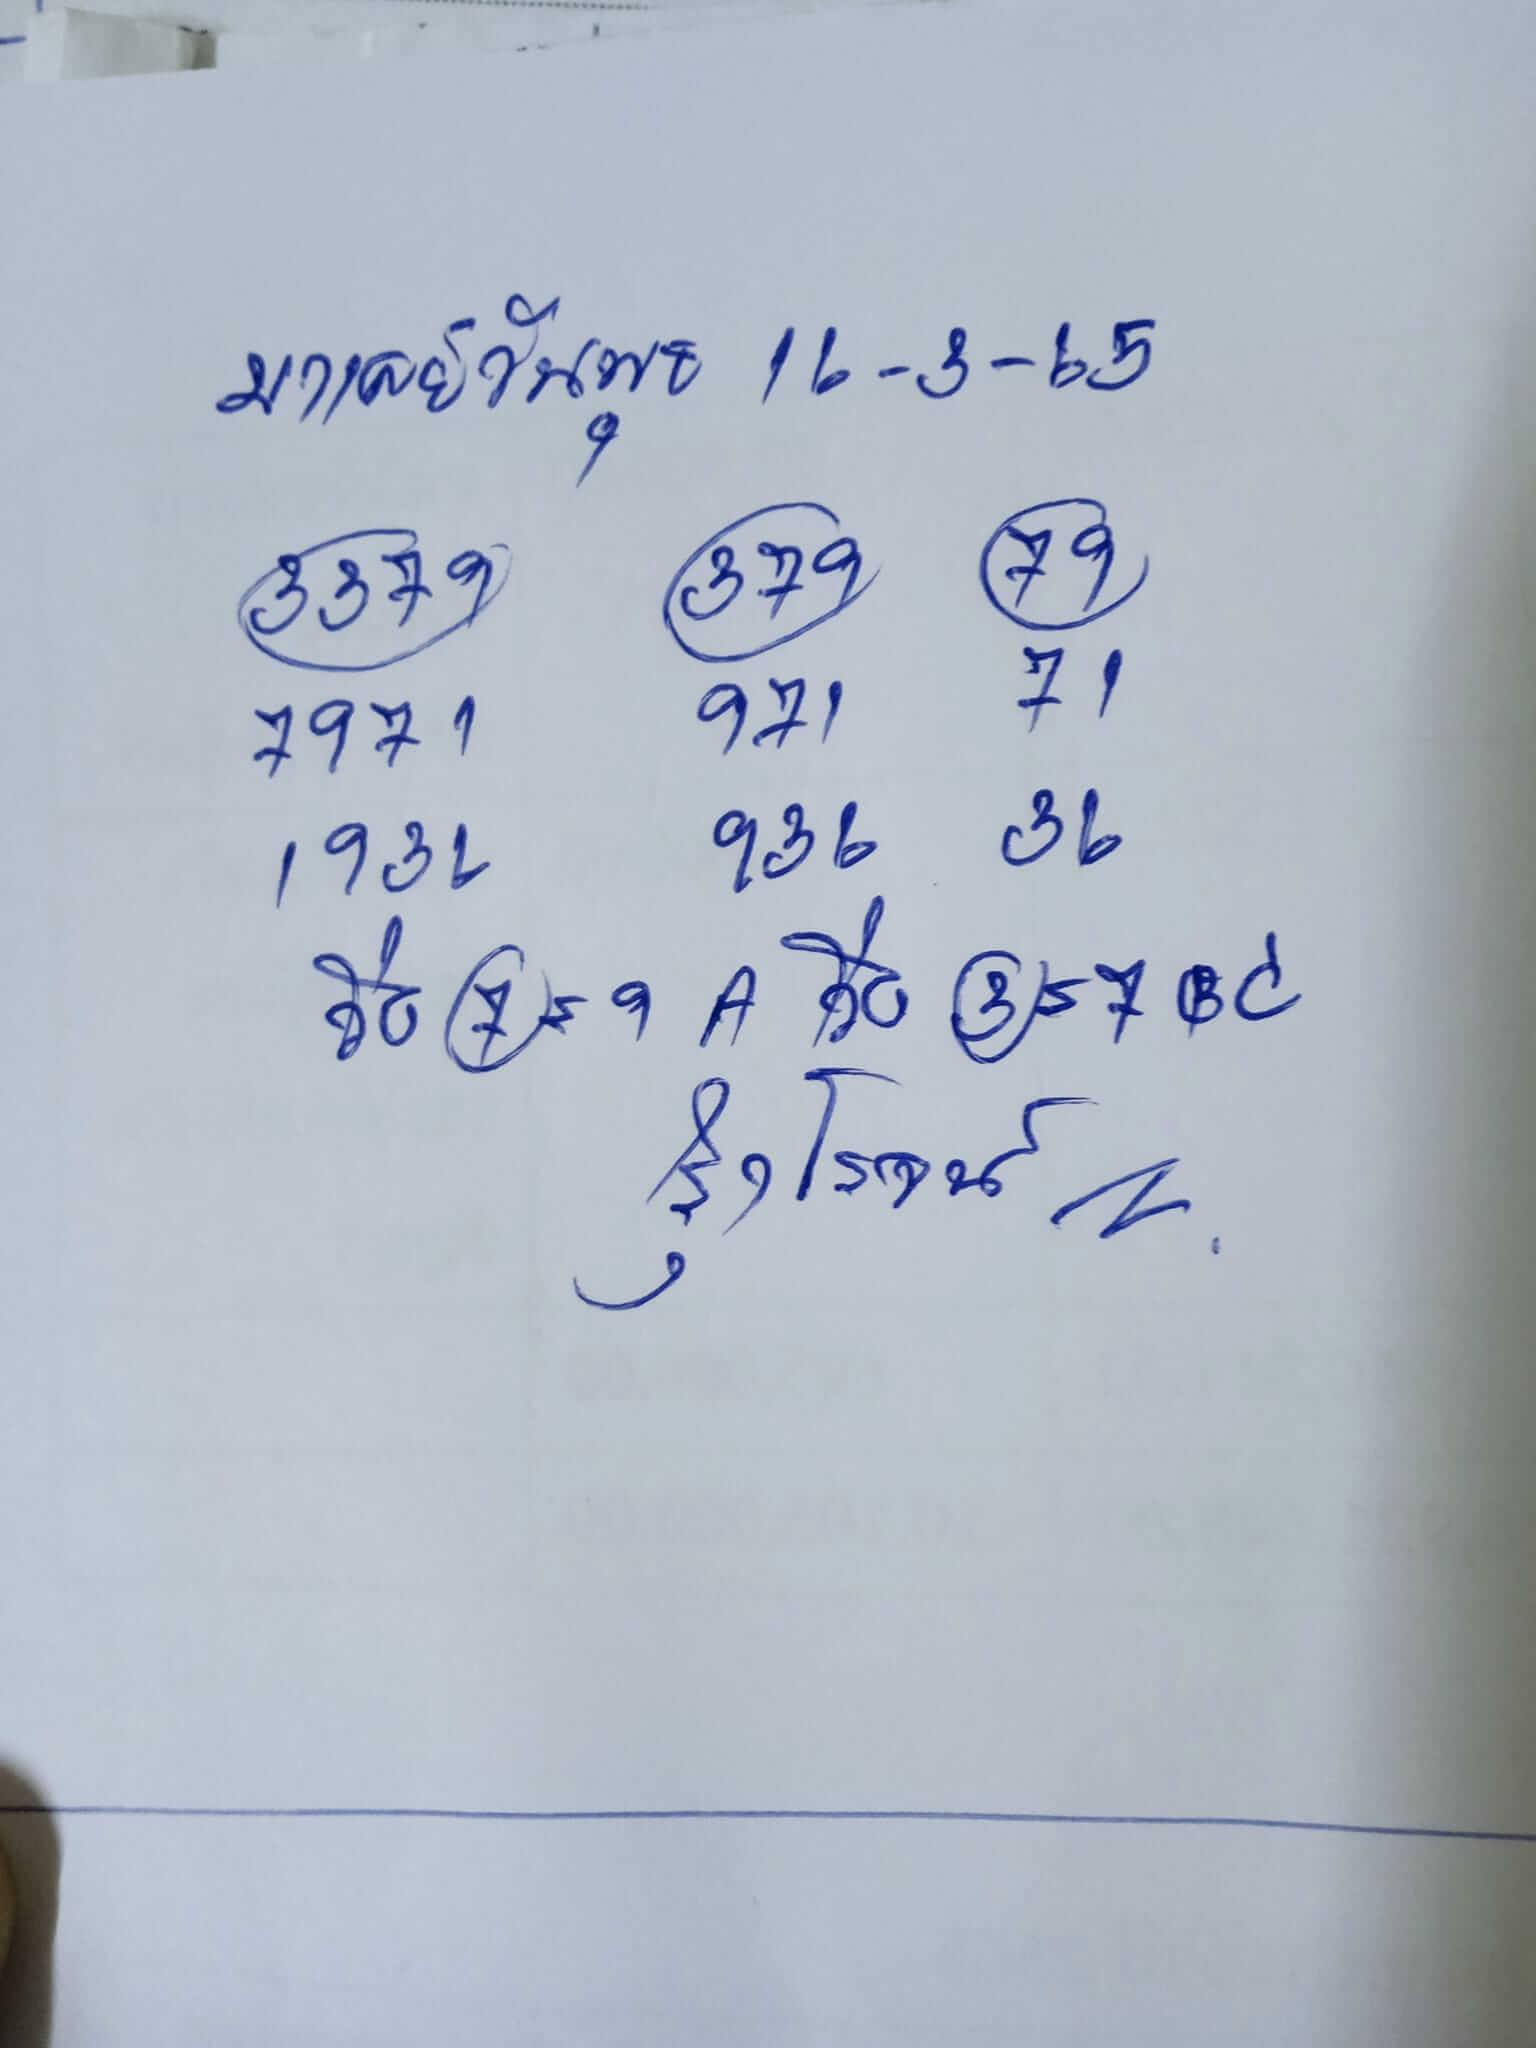 มาเลย์วันพุธ 16-3-65
3379 379 79
7971 971 71
1936 936 36
คือ 7=9 A คือ 3=7 BC
โรจน์